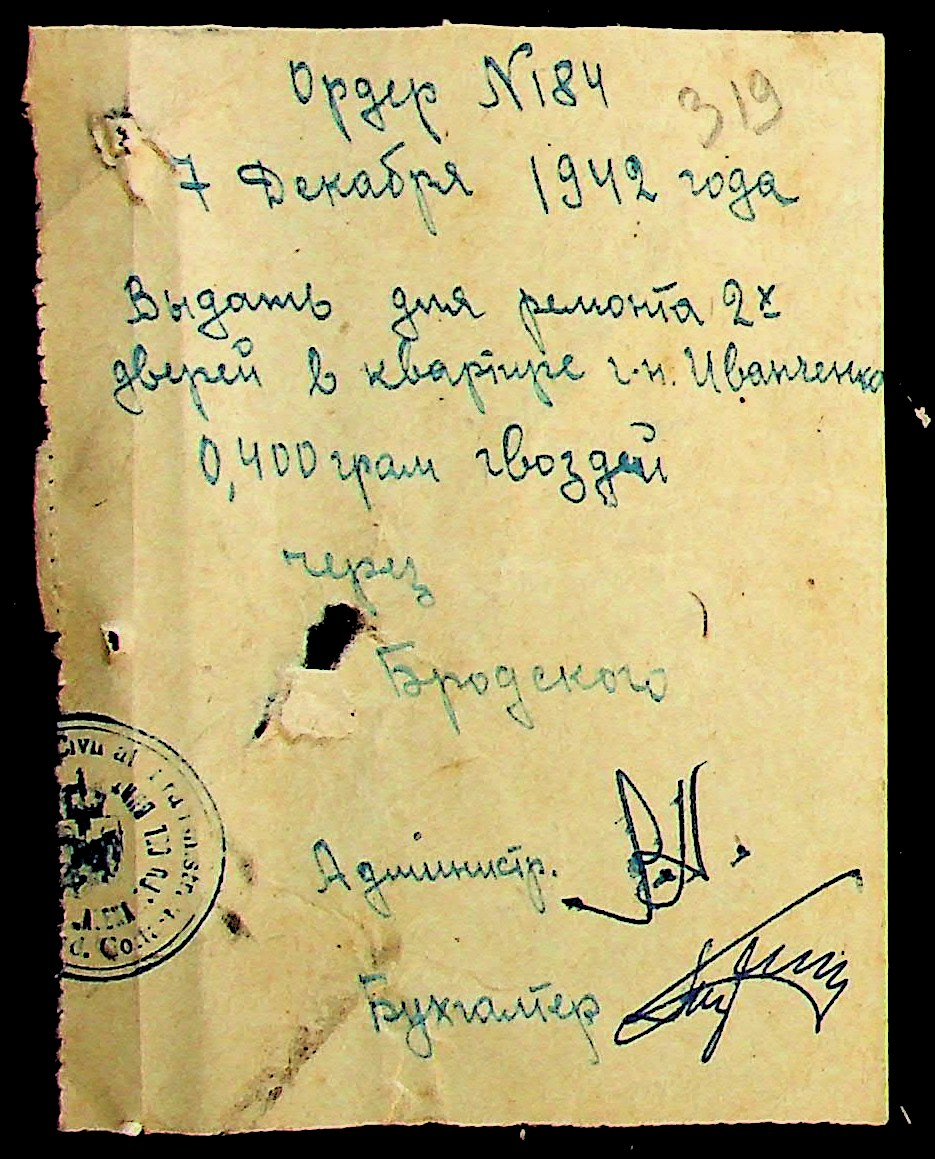 Ордер N184
319
7 Декабря 1942 года
Выдать для ремонта 2х
дверей в квартире г-н. Иванченко
0,400 грам гвоздей
через
Бродского
Civil al
Администр.
Бухгалтер